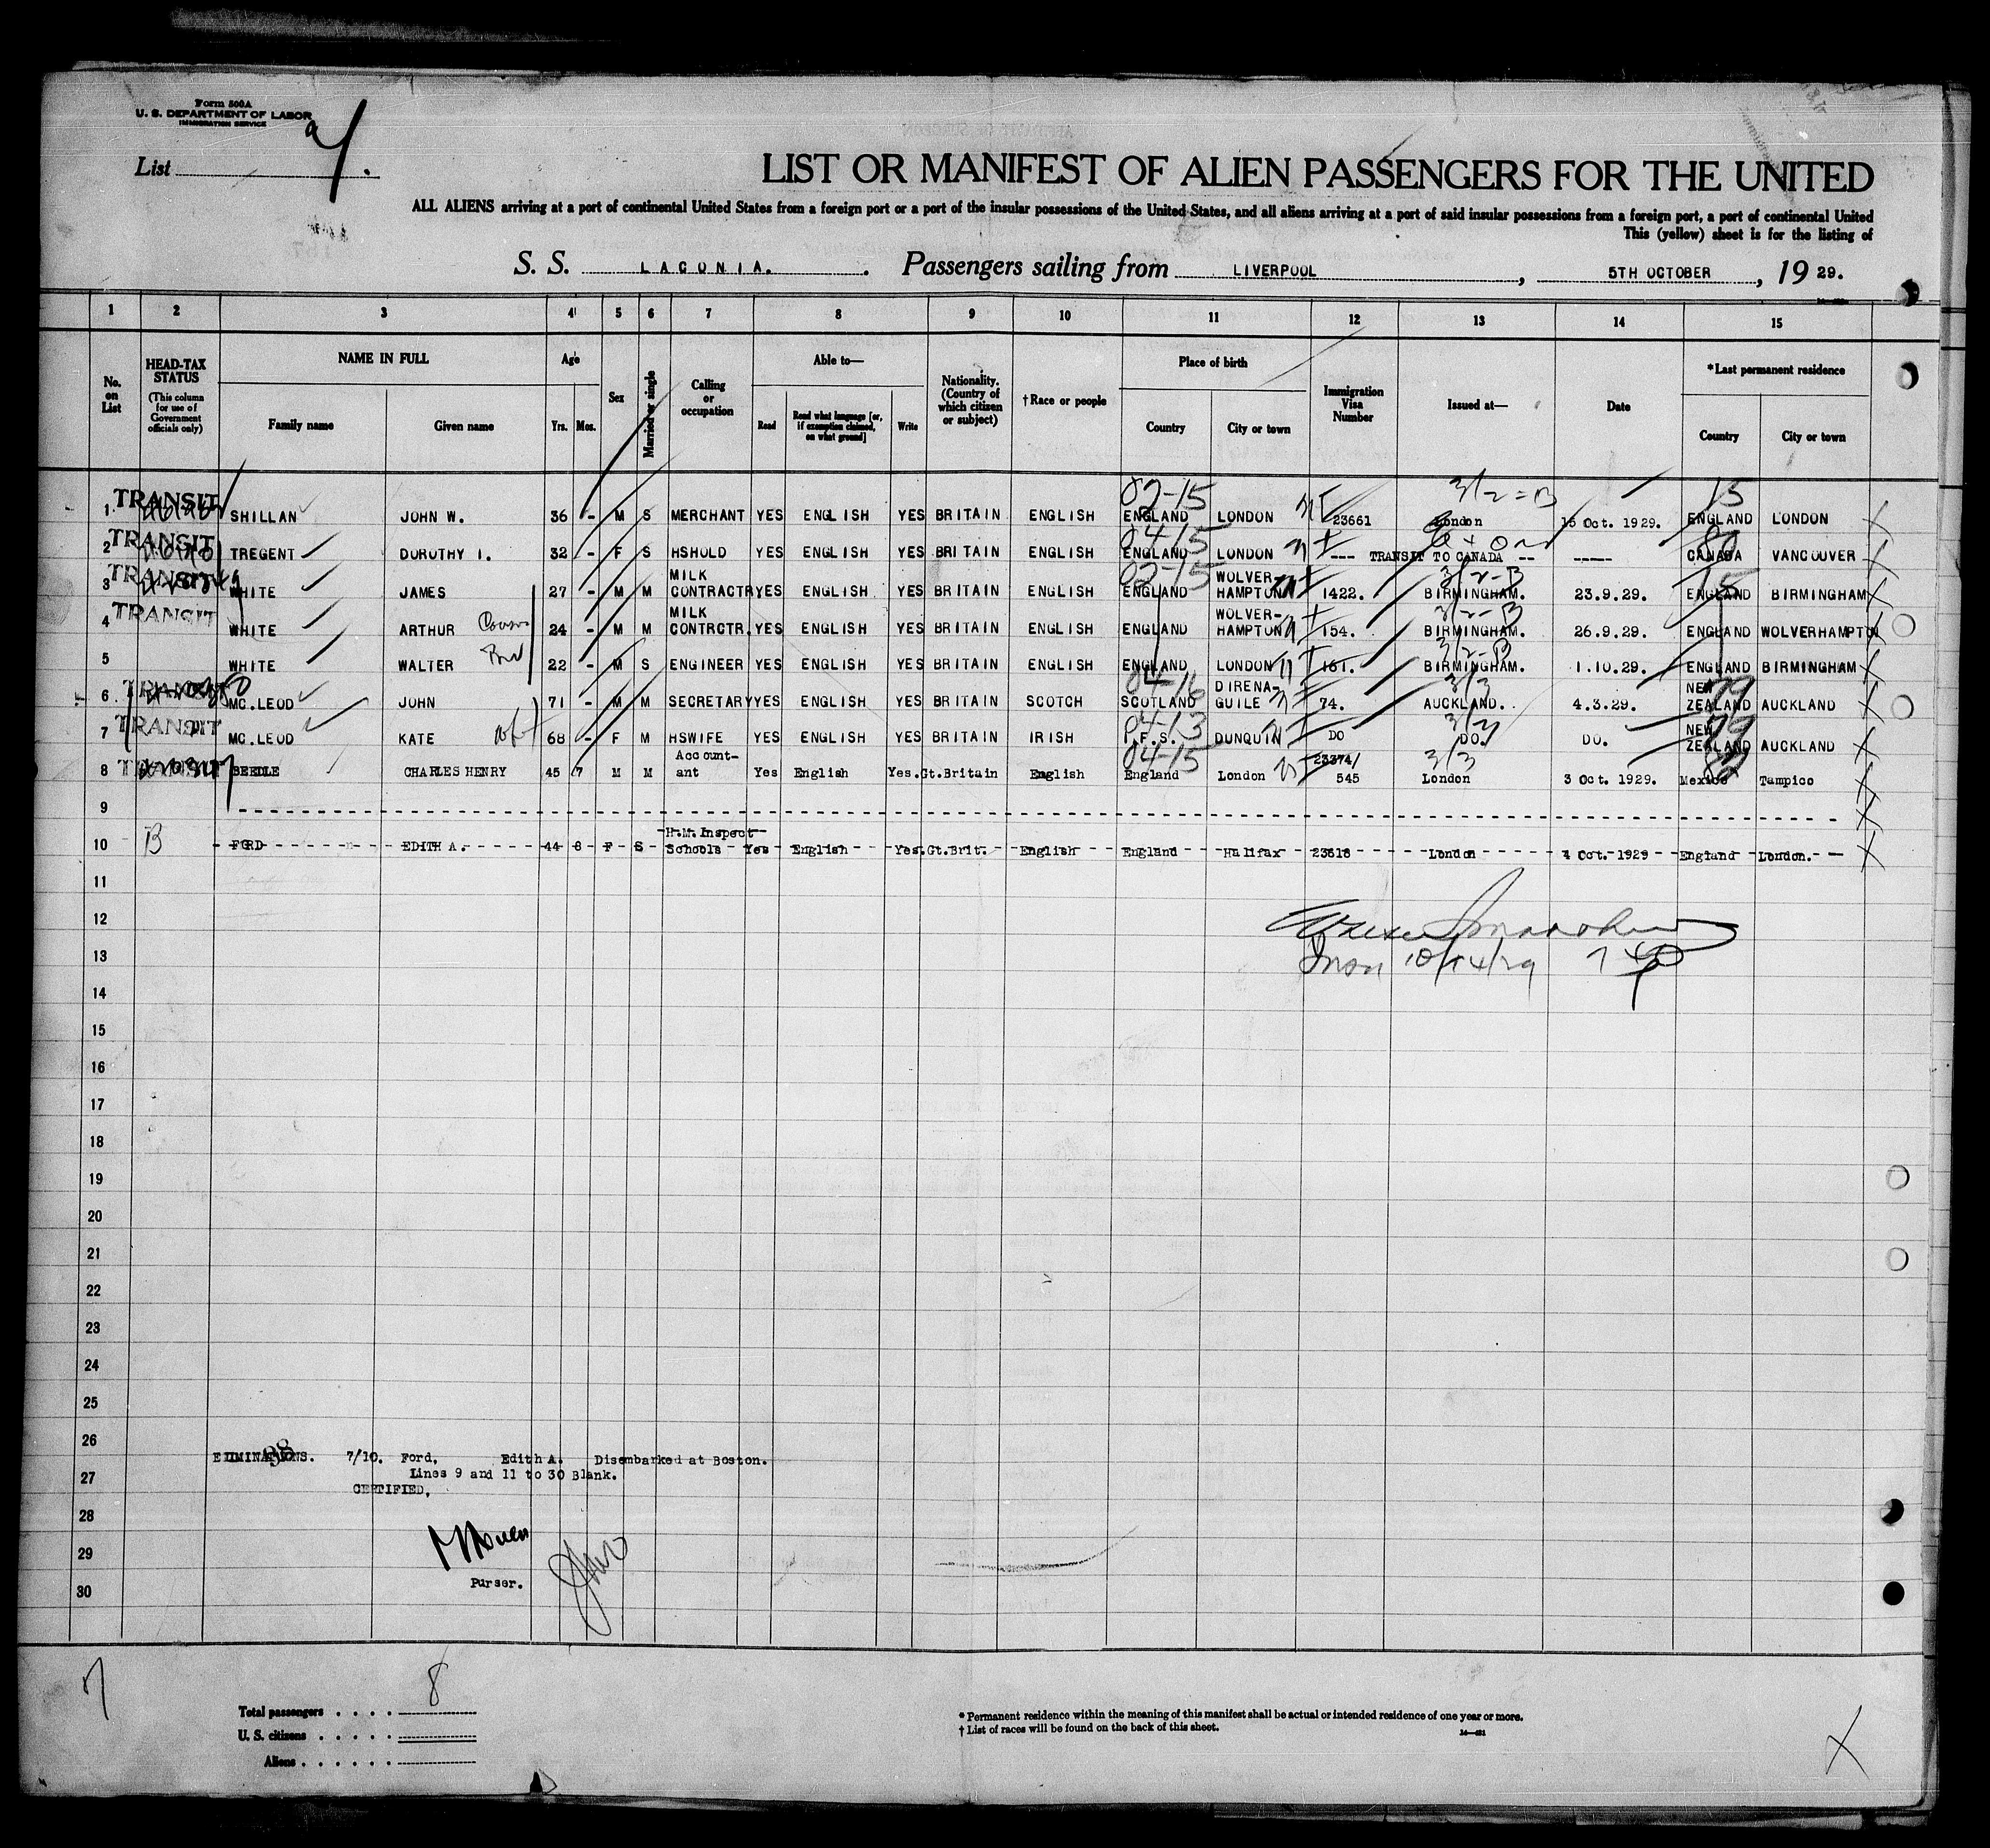 Form 500A
U. S. DEPARTMENT OF LABOR
IMMIGRATION SERVICE
List
LIST OR MANIFEST OF ALIEN PASSENGERS FOR THE UNITED
ALL ALIENS arriving at a port of continental United States from a foreign port or a port of the insular possessions of the United States, and all aliens arriving at a port of said insular possessions from a foreign port, a port of continental United
This (yellow) sheet is for the listing of
S. S. LACONIA. Passengers sailing from LIVERPOOL, 5TH OCTOBER, 19 29.
1 2 3 4 5 6 7 8 9 10 11 12 13 14 15
No. on List
HEAD-TAX STATUS (This column for use of Government officials only)
NAME IN FULL
Family name Given name
Age
Yrs. Mos.
Sex
Married or single
Calling or occupation
Able to—
Read Read what language [or, if exemption claimed, on what ground] Write
Nationality. (Country of which citizen or subject)
†Race or people
Place of birth
Country City or town
Immigration Visa Number
Issued at—
Date
*Last permanent residence
Country City or town
02-15 3/2=B 15
1 TRANSIT SHILLAN JOHN W. 36 - M S MERCHANT YES ENGLISH YES BRITAIN ENGLISH ENGLAND LONDON 23661 London 15 Oct. 1929. ENGLAND LONDON
04-15
2 TRANSIT TREGENT DOROTHY I. 32 - F S HSHOLD YES ENGLISH YES BRITAIN ENGLISH ENGLAND LONDON --- TRANSIT TO CANADA -- ---- CANADA VANCOUVER
02-15 3/2-B 15
3 TRANSIT WHITE JAMES 27 - M M MILK CONTRACTR YES ENGLISH YES BRITAIN ENGLISH ENGLAND WOLVER-HAMPTON 1422. BIRMINGHAM. 23.9.29. ENGLAND BIRMINGHAM
3/2-B
4 TRANSIT WHITE ARTHUR 24 - M M MILK CONTRCTR. YES ENGLISH YES BRITAIN ENGLISH ENGLAND WOLVER-HAMPTON 154. BIRMINGHAM. 26.9.29. ENGLAND WOLVERHAMPTON
3/2-B
5 WHITE WALTER 22 - M S ENGINEER YES ENGLISH YES BRITAIN ENGLISH ENGLAND LONDON 161. BIRMINGHAM. 1.10.29. ENGLAND BIRMINGHAM
04-16 3/3 79
6 TRANSIT MC.LEOD JOHN 71 - M M SECRETARY YES ENGLISH YES BRITAIN SCOTCH SCOTLAND DIRENA-GUILE 74. AUCKLAND. 4.3.29. NEW ZEALAND AUCKLAND
04-13 3/3 79
7 TRANSIT MC.LEOD KATE wf 68 - F M HSWIFE YES ENGLISH YES BRITAIN IRISH I.F.S. DUNQUIN DO DO. DO. NEW ZEALAND AUCKLAND
04-15 3/3
8 TRANSIT BEEDLE CHARLES HENRY 45 7 M M Account-ant Yes English Yes. Gt.Britain English England London 23374/545 London 3 Oct. 1929. Mexico Tampico
9
10 B FORD EDITH A. 44 8 F S H.M. Inspect Schools Yes English Yes. Gt.Brit. English England Halifax 23618 London 4 Oct. 1929 England London.
11
12
13 10/14/29
14
15
16
17
18
19
20
21
22
23
24
25
26
ELIMINATIONS. 7/10. Ford, Edith A. Disembarked at Boston.
27 Lines 9 and 11 to 30 Blank.
CERTIFIED,
28
29
Purser.
30
7
Total passengers 8
U. S. citizens
Aliens
* Permanent residence within the meaning of this manifest shall be actual or intended residence of one year or more.
† List of races will be found on the back of this sheet.